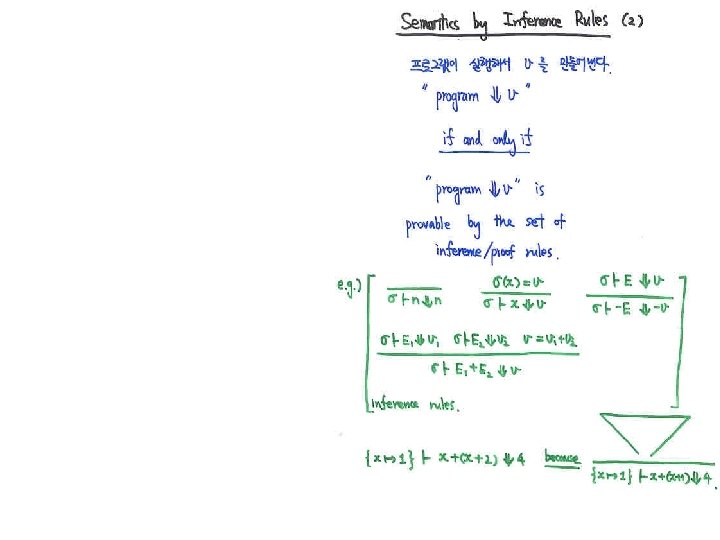 Semantics by Inference Rules (2)
프로그램이 실행해서 v를 만들어낸다.
"program ⇓ v"
if and only if
"program ⇓ v" is
provable by the set of
inference/proof rules.
e.g.)
σ ⊢ n ⇓ n
σ(x) = v
σ ⊢ x ⇓ v
σ ⊢ E ⇓ v
σ ⊢ -E ⇓ -v
σ ⊢ E₁ ⇓ v₁ σ ⊢ E₂ ⇓ v₂ v = v₁+v₂
σ ⊢ E₁ + E₂ ⇓ v
inference rules.
{x ↦ 1} ⊢ x+(x+2) ⇓ 4 because
{x ↦ 1} ⊢ x+(x+1) ⇓ 4.